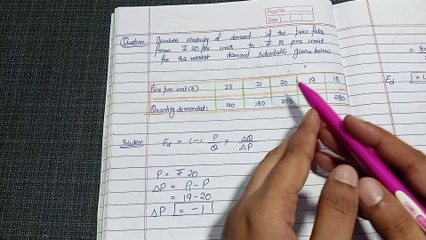 Page No.
Date
Question: Calculate elasticity of demand if the price falls
from ₹ 20 per unit to ₹ 19 per unit
for the market demand schedule given below
Price per unit (₹) 22 21 20 19 18
Quantity demanded: 180 210 280
Solution: Ed = (-) P/Q × ΔQ/ΔP
P = ₹ 20
ΔP = P - P
= 19-20
ΔP = -1
Ed